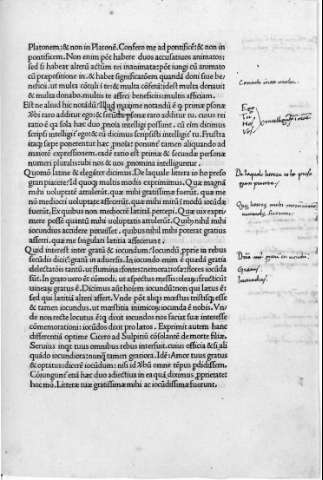 Platonem: & non in Platonē. Confero me ad pontificē: & non in
pontificem. Non enim pōt habere duos accusatiuos animatos:
sed si habeat alterū actūm rei inanimatæ: pōt iungi cū animato
cū præpositione in. & habet significatōem quandā doni siue be
neficii. ut multa cōtuli i te: & multa cōtulisti idest multa donauit
& multa donabo. multis te affeci beneficiis: multis afficiam.
Est ne aliud hic notādū? Illud maxime notandū ē q primæ psonæ
ubū raro additur ego: & secūdæ psonæ raro additur tu. cuius rei
ratio ē qa sola hæc duo pnoia intelligi possunt. cū eim dicimus
scripsi intelligit ego: & cū dicimus scripsisti intelligit tu. Frustra
itaq; sæpe ponerentur hæc pnoia: ponunt tamen aliquando ad
maiorē expressionem. eadē ratio est primæ & secundæ personæ
numeri pluralis: ubi nos & uos pronomina intelliguntur.
Quomō latine & elegāter dicimus. De laquale lettera io ho preso
gran piacere: Id quoq; multis modis exprimimus. Quæ magnā
mihi uoluptatē attulerūt. quæ mihi gratissimæ fuerūt. quæ me
nō mediocri uoluptate affecerūt. quæ mihi mirū ī modū iocūdæ
fuerūt. Ex quibus non mediocrē lætitiā percepi. Quæ tāta
mere possē quātā uoluptatē mihi attulerūt. Quibus nihil mihi
iocundius accidere potuisset. quibus nihil mihi poterat gratius
afferri. quæ me singulari lætitia affecerunt.
Quid interest inter gratū & iocundum? Iocundū pprie in rebus
secūdis dicit: gratū in aduersis. In iocundo enim ē quædā gratia
delectatiōis tantū. ut flumina: fontes: nemora: rosæ: flores iocūda
sūt. In grato uero ē cōmodi. ut aspectus messis: oleaq; fructicū
uineaq; gratus ē. Dicimus aūt hoiem iocundū: non qui lætus ē:
sed qui lætitiā alteri affert. Vnde pōt aliqs mœstus tristisq; esse
& tamen iocundus. ut mœstitia inimico: iocunda ē nobis. Vn
de non recte locutus ē q dixit iocundos nos faciat suæ interesse
cōmemorationi: iocūdos dixit pro lætos. Exprimit autem hanc
differentiā optime Cicero ad Sulpitiū cōsolantē de morte filiæ.
Seruius inqt tuus omnibus rebus interfuit. cuius officia & si ali
quādo iocundiora: nunq tamen gratiora. Idē: Amor tuus gratus
& optatus: dicerē iocūdum: nisi id ubū omne tēpus pdidissem.
Cōiungunt etiā hæc duo adiectiua in ea quā diximus pprietate:
hac mō. Litteræ tuæ gratissimæ mihi ac iocūdissimæ fuerunt.
Ego
Tu
Nos
Vos
De laquale lettera io ho preso
gran piacere.
Gratū
Iocundū